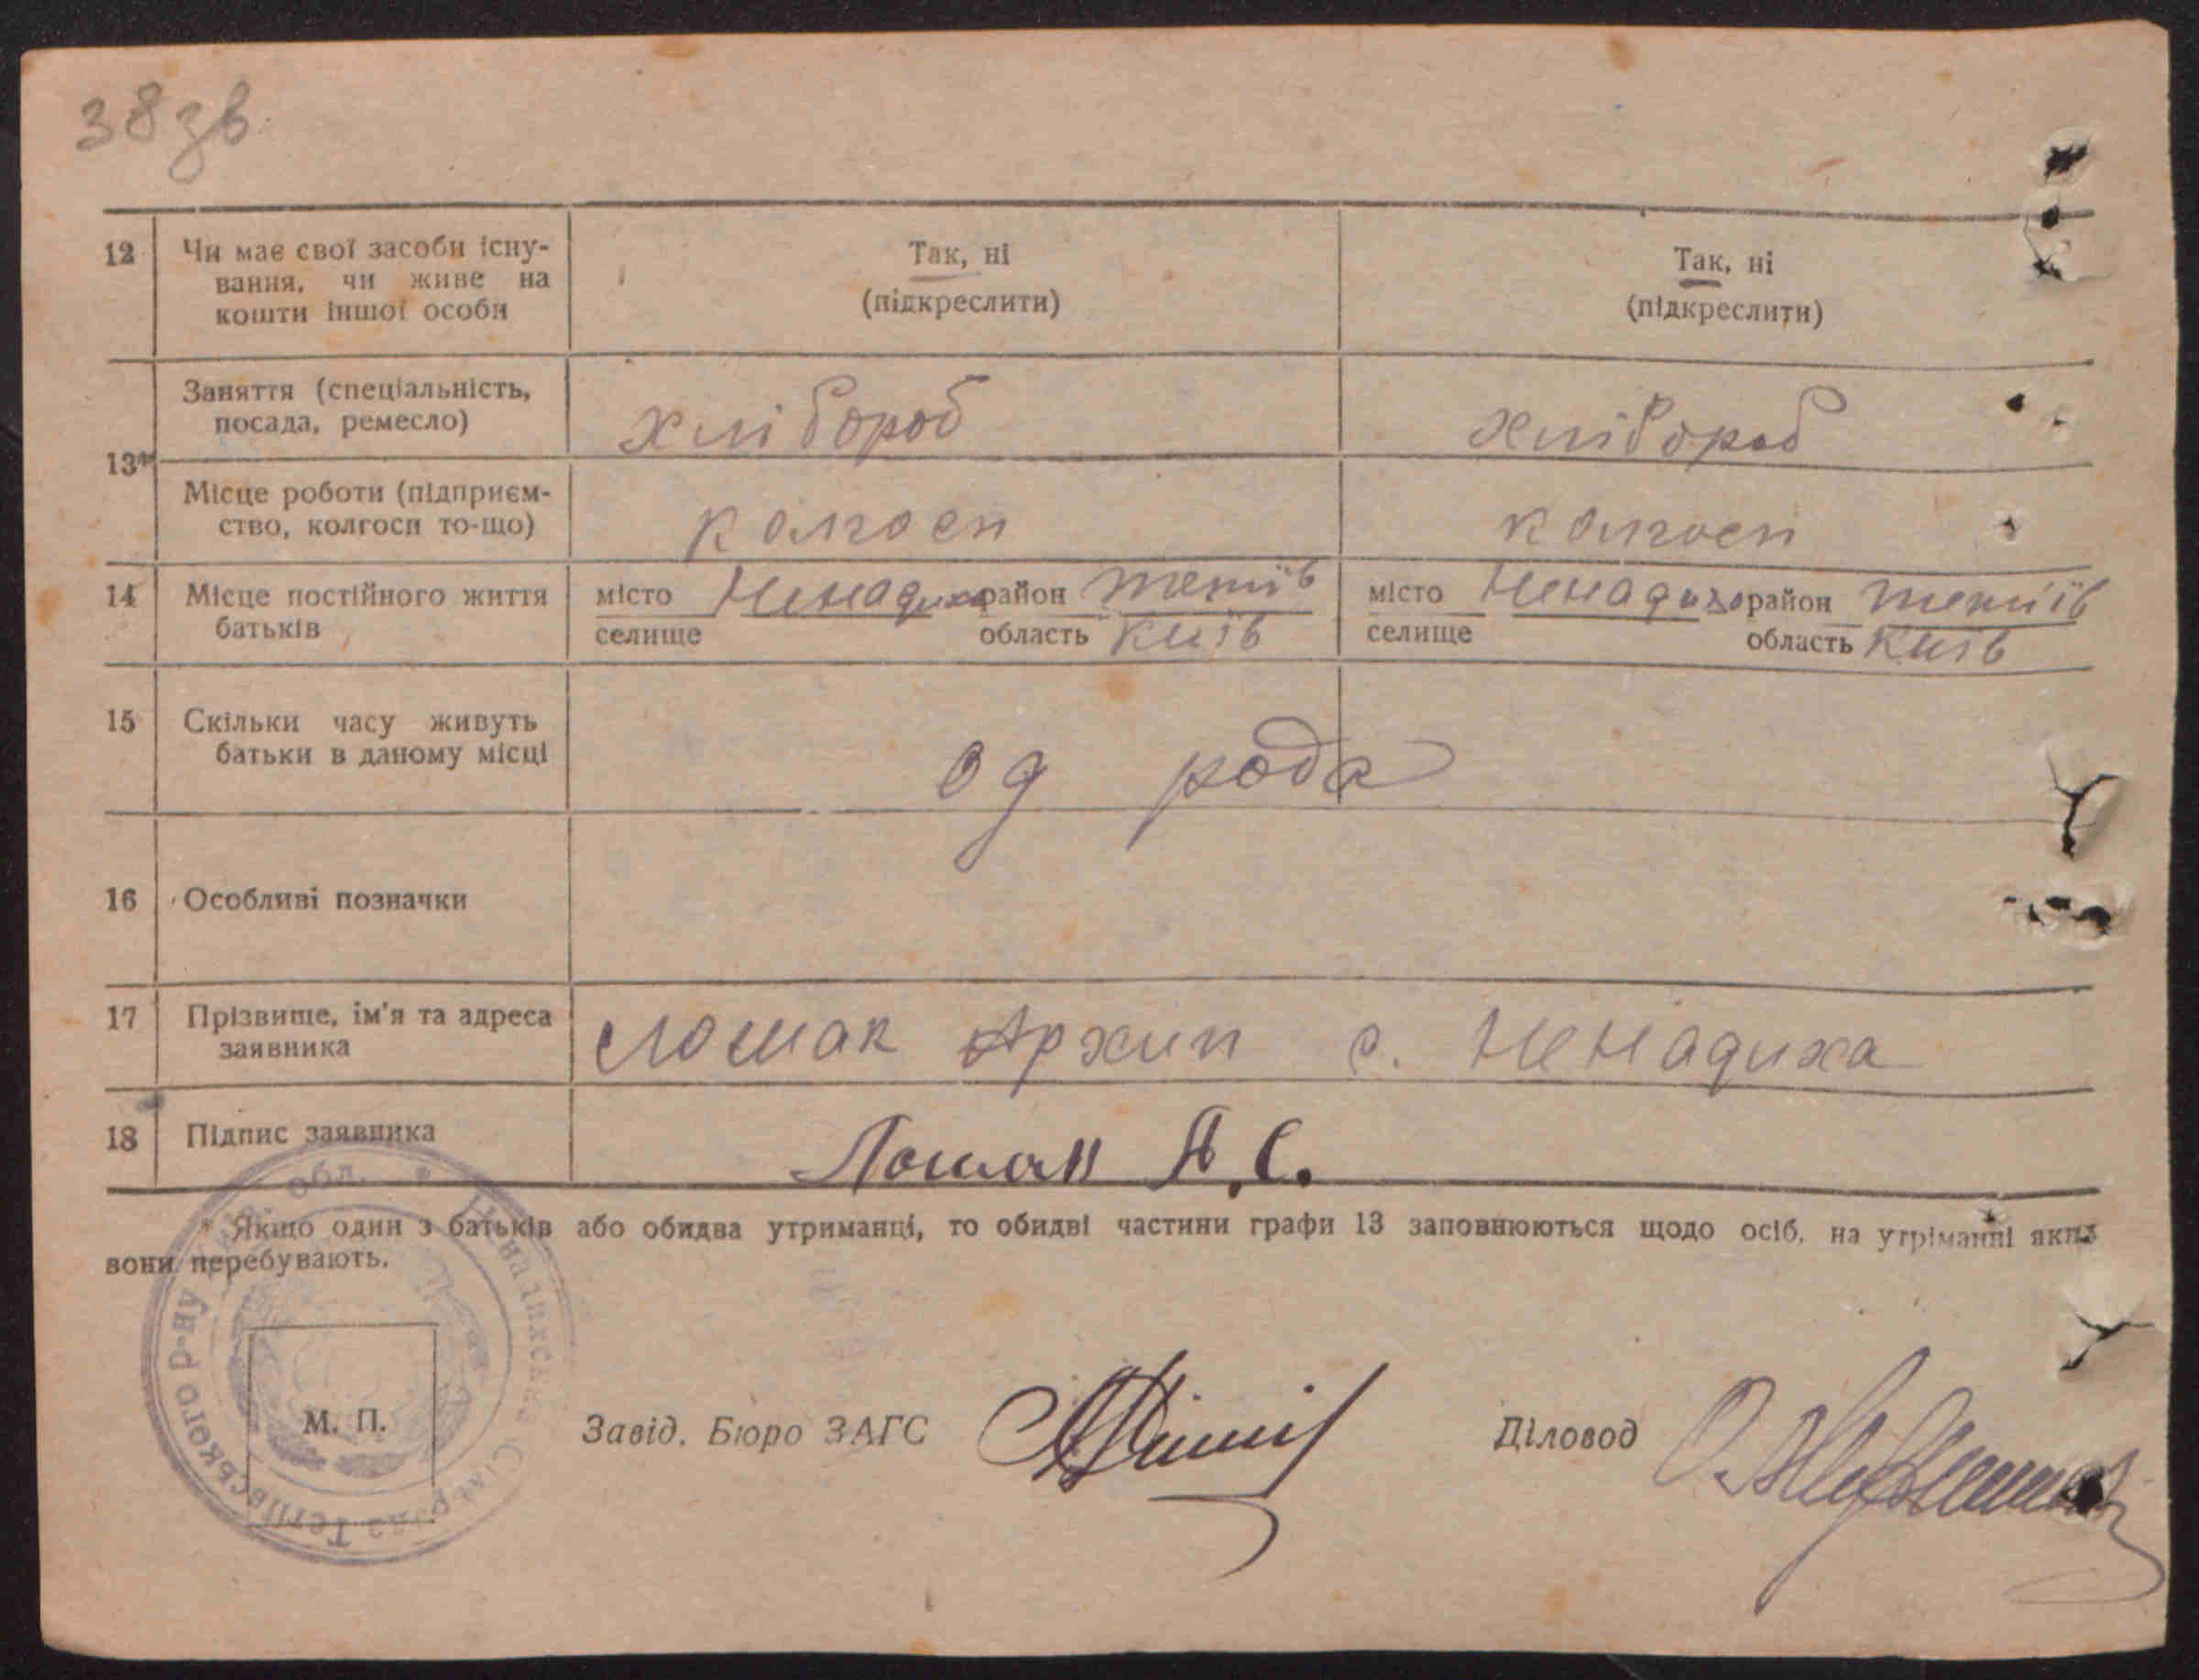 38 зв
12 Чи має свої засоби існу-
вання, чи живе на
кошти іншої особи
Так, ні
(підкреслити)
Так, ні
(підкреслити)
13*
Заняття (спеціальність,
посада, ремесло)
хлібороб
хлібороб
Місце роботи (підприєм-
ство, колгосп то-що)
колгосп
колгосп
14 Місце постійного життя
батьків
місто Ненадиха район Тетіїв
селище область Київ
місто Ненадиха район Тетіїв
селище область Київ
15 Скільки часу живуть
батьки в даному місці
од рода
16 Особливі позначки
17 Прізвище, ім'я та адреса
заявника
Лошак Архип с. Ненадиха
18 Підпис заявника
Лошак А. С.
* Якщо один з батьків або обидва утриманці, то обидві частини графи 13 заповнюються щодо осіб, на утріманні яких
вони перебувають.
М. П.
Завід. Бюро ЗАГС
Діловод
обл. * Ненадихська Сільрада Тетіївського р-ну